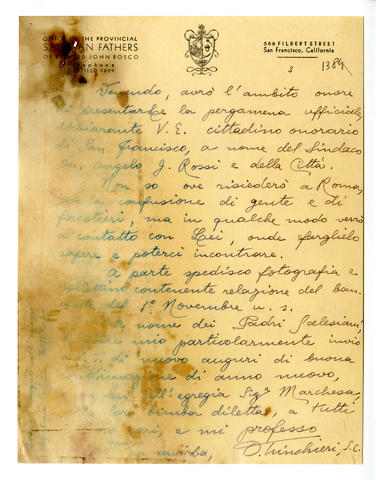 OFFICE OF THE PROVINCIAL
FATHERS
JOHN BOSCO
Telephone
0809
666 FILBERT STREET
San Francisco, California
3
1389
Venendo, avrò l'ambito onore
presentarLe la pergamena ufficiale
dichiarante V. E. cittadino onorario
di San Francisco, a nome del Sindaco
On. Angelo J. Rossi e della Città.
Non so ove risiederò a Roma,
la confusione di gente e di
forestieri, ma in qualche modo verrò
a contatto con Lei, onde farglielo
sapere e poterci incontrare.
A parte spedisco fotografia e
contenente relazione del ban
del 1° Novembre u. s.
nome dei Padri Salesiani,
mio particolarmente invio
di nuovo auguri di buona
di anno nuovo,
all'egregia Sigª Marchesa,
bimba diletta, a tutti
cari, e mi professo
O. Trinchieri, S.C.